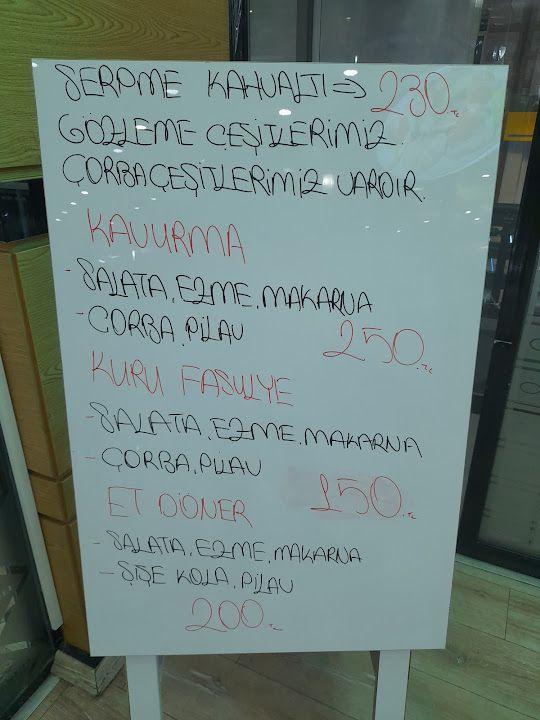 SERPME KAHVALTI => 230.TL
GÖZLEME ÇEŞİTLERİMİZ.
ÇORBA ÇEŞİTLERİMİZ VARDIR.
KAVURMA
- SALATA, EZME, MAKARNA
- ÇORBA, PİLAV 250.TL
KURU FASULYE
- SALATA, EZME, MAKARNA
- ÇORBA, PİLAV 150.TL
ET DÖNER
- SALATA, EZME, MAKARNA
- ŞİŞE KOLA, PİLAV
200.TL